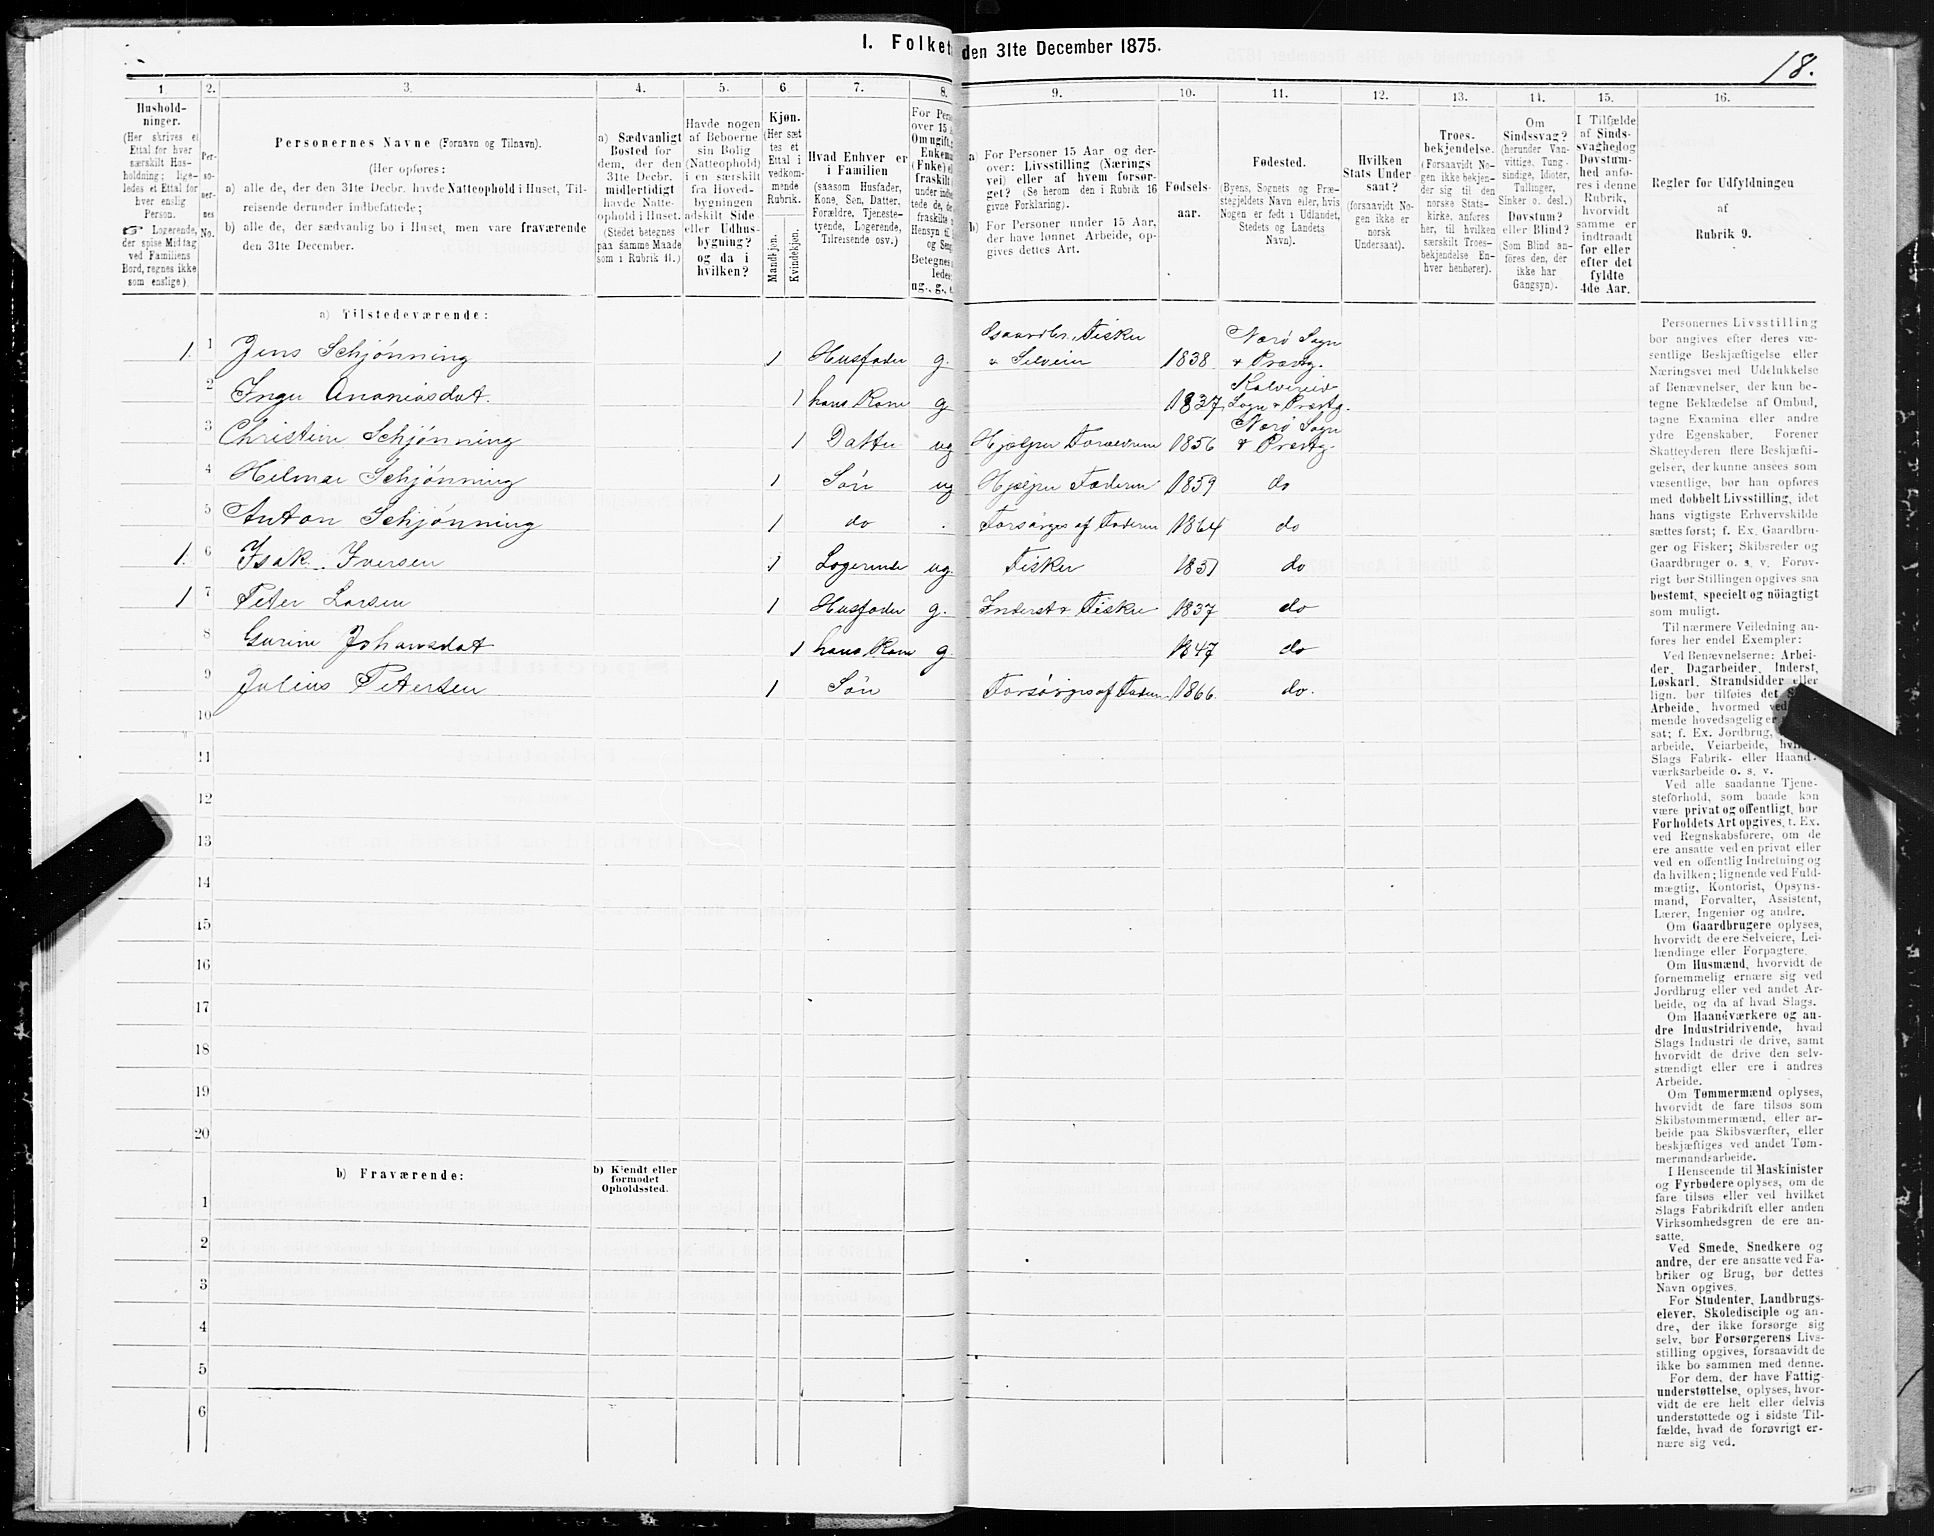 1. Folket
den 31te December 1875.
18.
1
2.
3.
4.
5.
6
7.
8.
9.
10.
11.
12.
13.
14.
15.
16.
Hushold-
ninger.
(Her skrives et
Ettal for hver
særskilt Hus-
holdning; lige-
ledes et Ettal for
hver enslig
Person.
☞ Logerende,
der spise Middag
ved Familiens
Bord, regnes ikke
som enslige)
Per-
so-
ner-
nes
No.
Personernes Navne (Fornavn og Tilnavn).
(Her opføres:
a) alle de, der den 31te Decbr. havde Natteophold i Huset, Til-
reisende derunder indbefattede;
b) alle de, der sædvanlig bo i Huset, men vare fraværende
den 31te December.
a) Sædvanligt
Bosted for
dem, der den
31te Decbr.
midlertidigt
havde Natte-
ophold i Huset.
(Stedet betegnes
paa samme Maade
som i Rubrik 11.)
Havde nogen
af Beboerne
sin Bolig
(Natteophold)
i en særskilt
fra Hoved-
bygningen
adskilt Side
eller Udhus-
bygning?
og da i
hvilken?
Kjøn.
(Her sæt
tes et
Ettal i
vedkom-
mende
Rubrik.
Mandkjøn.
Kvindekjøn.
Hvad Enhver er
i Familien
(saasom Husfader,
Kone, Søn, Datter,
Forældre, Tjeneste-
tyende, Logerende,
Tilreisende osv.)
For Pers
over 15 A
Om ugift,
Enkema
(Enke) e
fraskilt
under indbe
tede de, de
fraskilte
Hensyn til
og Seng
Betegnes
ledes
ug., g., e.
a) For Personer 15 Aar og der-
over: Livsstilling (Nærings
vei) eller af hvem forsør-
get? (Se herom den i Rubrik 16
givne Forklaring).
b) For Personer under 15 Aar,
der have lønnet Arbeide, op-
gives dettes Art.
Fødsels-
aar.
Fødested.
(Byens, Sognets og Præ-
stegjeldets Navn eller, hvis
Nogen er født i Udlandet,
Stedets og Landets
Navn).
Hvilken
Stats Under
saat?
(forsaavidt No-
gen ikke er
norsk
Undersaat).
Troes-
bekjendelse.
(Forsaavidt No-
gen ikke bekjen-
der sig til den
norske Stats-
kirke, anføres
her, til hvilken
særskilt Troes-
bekjendelse En-
hver henhører).
Om
Sindssvag?
(herunder Van-
vittige, Tung-
sindige, Idioter,
Tullinger,
Sinker o. desl.)
Døvstum?
eller Blind?
(Som Blind an-
føres den, der
ikke har
Gangsyn).
I Tilfælde
af Sinds-
svaghed og
Døvstum-
hed anfø-
res i denne
Rubrik,
hvorvidt
samme er
indtraadt
før eller
efter det
fyldte
4de Aar.
Regler for Udfyldningen
af
Rubrik 9.
a) Tilstedeværende:
Gaardbr., Fisker Nærø Sogn
1. 1 Jens Schjønning 1 Husfader g. & Selveier 1838 & Præstg.
Kolvereid
2 Inger Ananiasdat. 1 hans Kone g 1837 Sogn & Præstg.
Nærø Sogn
3 Christine Schjønning 1 Datter ug Hjælper Forældrene 1856 & Præstg.
4 Hilmar Schjønning 1 Søn ug Hjælper Faderen 1859 do
5 Anton Schjønning 1 do . Forsørges af Faderen 1864 do
1. 6 Isak Iversen 1 Logerende ug. Fisker 1851 do
1 7 Peter Larsen 1 Husfader g. Inderst & Fisker 1837 do
8 Gurine Johansdat 1 hans Kone g. 1847 do
9 Julius Petersen 1 Søn Forsørges af Faderen 1866. do.
10
11
12
13
14
15
16
17
18
19
20
b) Fraværende:
b) Kjendt eller
formodet
Opholdssted.
1
2
3
4
5
6
Personernes Livsstilling
bør angives efter deres væ-
sentlige Beskjæftigelse eller
Næringsvei med Udelukkelse
af Benævnelser, der kun be-
tegne Beklædelse af Ombud,
tagne Examina eller andre
ydre Egenskaber. Forener
Skatteyderen flere Beskjæfti-
gelser, der kunne ansees som
væsentlige, bør han opføres
med dobbelt Livsstilling, idet
hans vigtigste Erhvervskilde
sættes først; f. Ex. Gaardbru-
ger og Fisker; Skibsreder og
Gaardbruger o. s. v. Forøv-
rigt bør Stillingen opgives saa
bestemt, specielt og nöiagtigt
som muligt.
Til nærmere Veiledning an-
føres her endel Exempler:
Ved Benævnelserne: Arbei-
der, Dagarbeider, Inderst,
Løskarl, Strandsidder eller
lign. bør tilføies det Slags
Arbeide, hvormed ved
mende hovedsagelig er
sat; f. Ex. Jordbrug,
arbeide, Veiarbeide, hvilket
Slags Fabrik- eller Haand-
værksarbeide o. s. v.
Ved alle saadanne Tjene-
steforhold, som baade kan
være privat og offentligt, bør
Forholdets Art opgives, f. Ex.
ved Regnskabsførere, om de
ere ansatte ved en privat eller
ved en offentlig Indretning og
da hvilken; lignende ved Fuld-
mægtig, Kontorist, Opsyns-
mand, Forvalter, Assistent,
Lærer, Ingeniør og andre.
Om Gaardbrugere oplyses,
hvorvidt de ere Selveiere, Lei-
lændinge eller Forpagtere.
Om Husmænd, hvorvidt de
fornemmelig ernære sig ved
Jordbrug eller ved andet Ar-
beide, og da af hvad Slags.
Om Haandværkere og an-
dre Industridrivende, hvad
Slags Industri de drive, samt
hvorvidt de drive den selv-
stændigt eller ere i andres
Arbeide.
Om Tømmermænd oplyses,
hvorvidt de fare tilsøs som
Skibstømmermænd, eller ar-
beide paa Skibsværfter, eller
beskjæftiges ved andet Tøm-
mermandsarbeide.
I Henseende til Maskinister
og Fyrbødere oplyses, om de
fare tilsøs eller ved hvilket
Slags Fabrikdrift eller anden
Virksomhedsgren de ere an-
satte.
Ved Smede, Snedkere og
andre, der ere ansatte ved Fa-
briker og Brug, bør dettes
Navn opgives.
For Studenter, Landbrugs-
elever, Skoledisciple og an-
dre, der ikke forsørge sig
selv, bør Forsørgerens Livs-
stilling opgives, forsaavidt de
ikke bo sammen med denne.
For dem, der have Fattig-
understøttelse, oplyses, hvor-
vidt de ere helt eller delvis
understøttede og i sidste Til-
fælde, hvad de forøvrigt er-
nære sig ved.